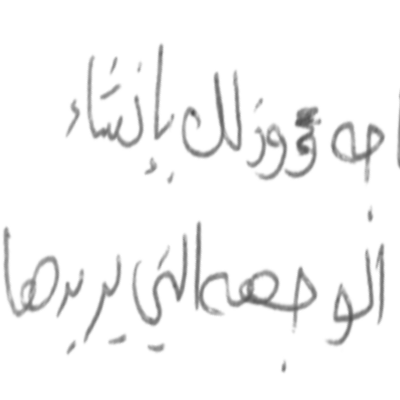 وذلك بإنشاء
الوجهه التي يريدها